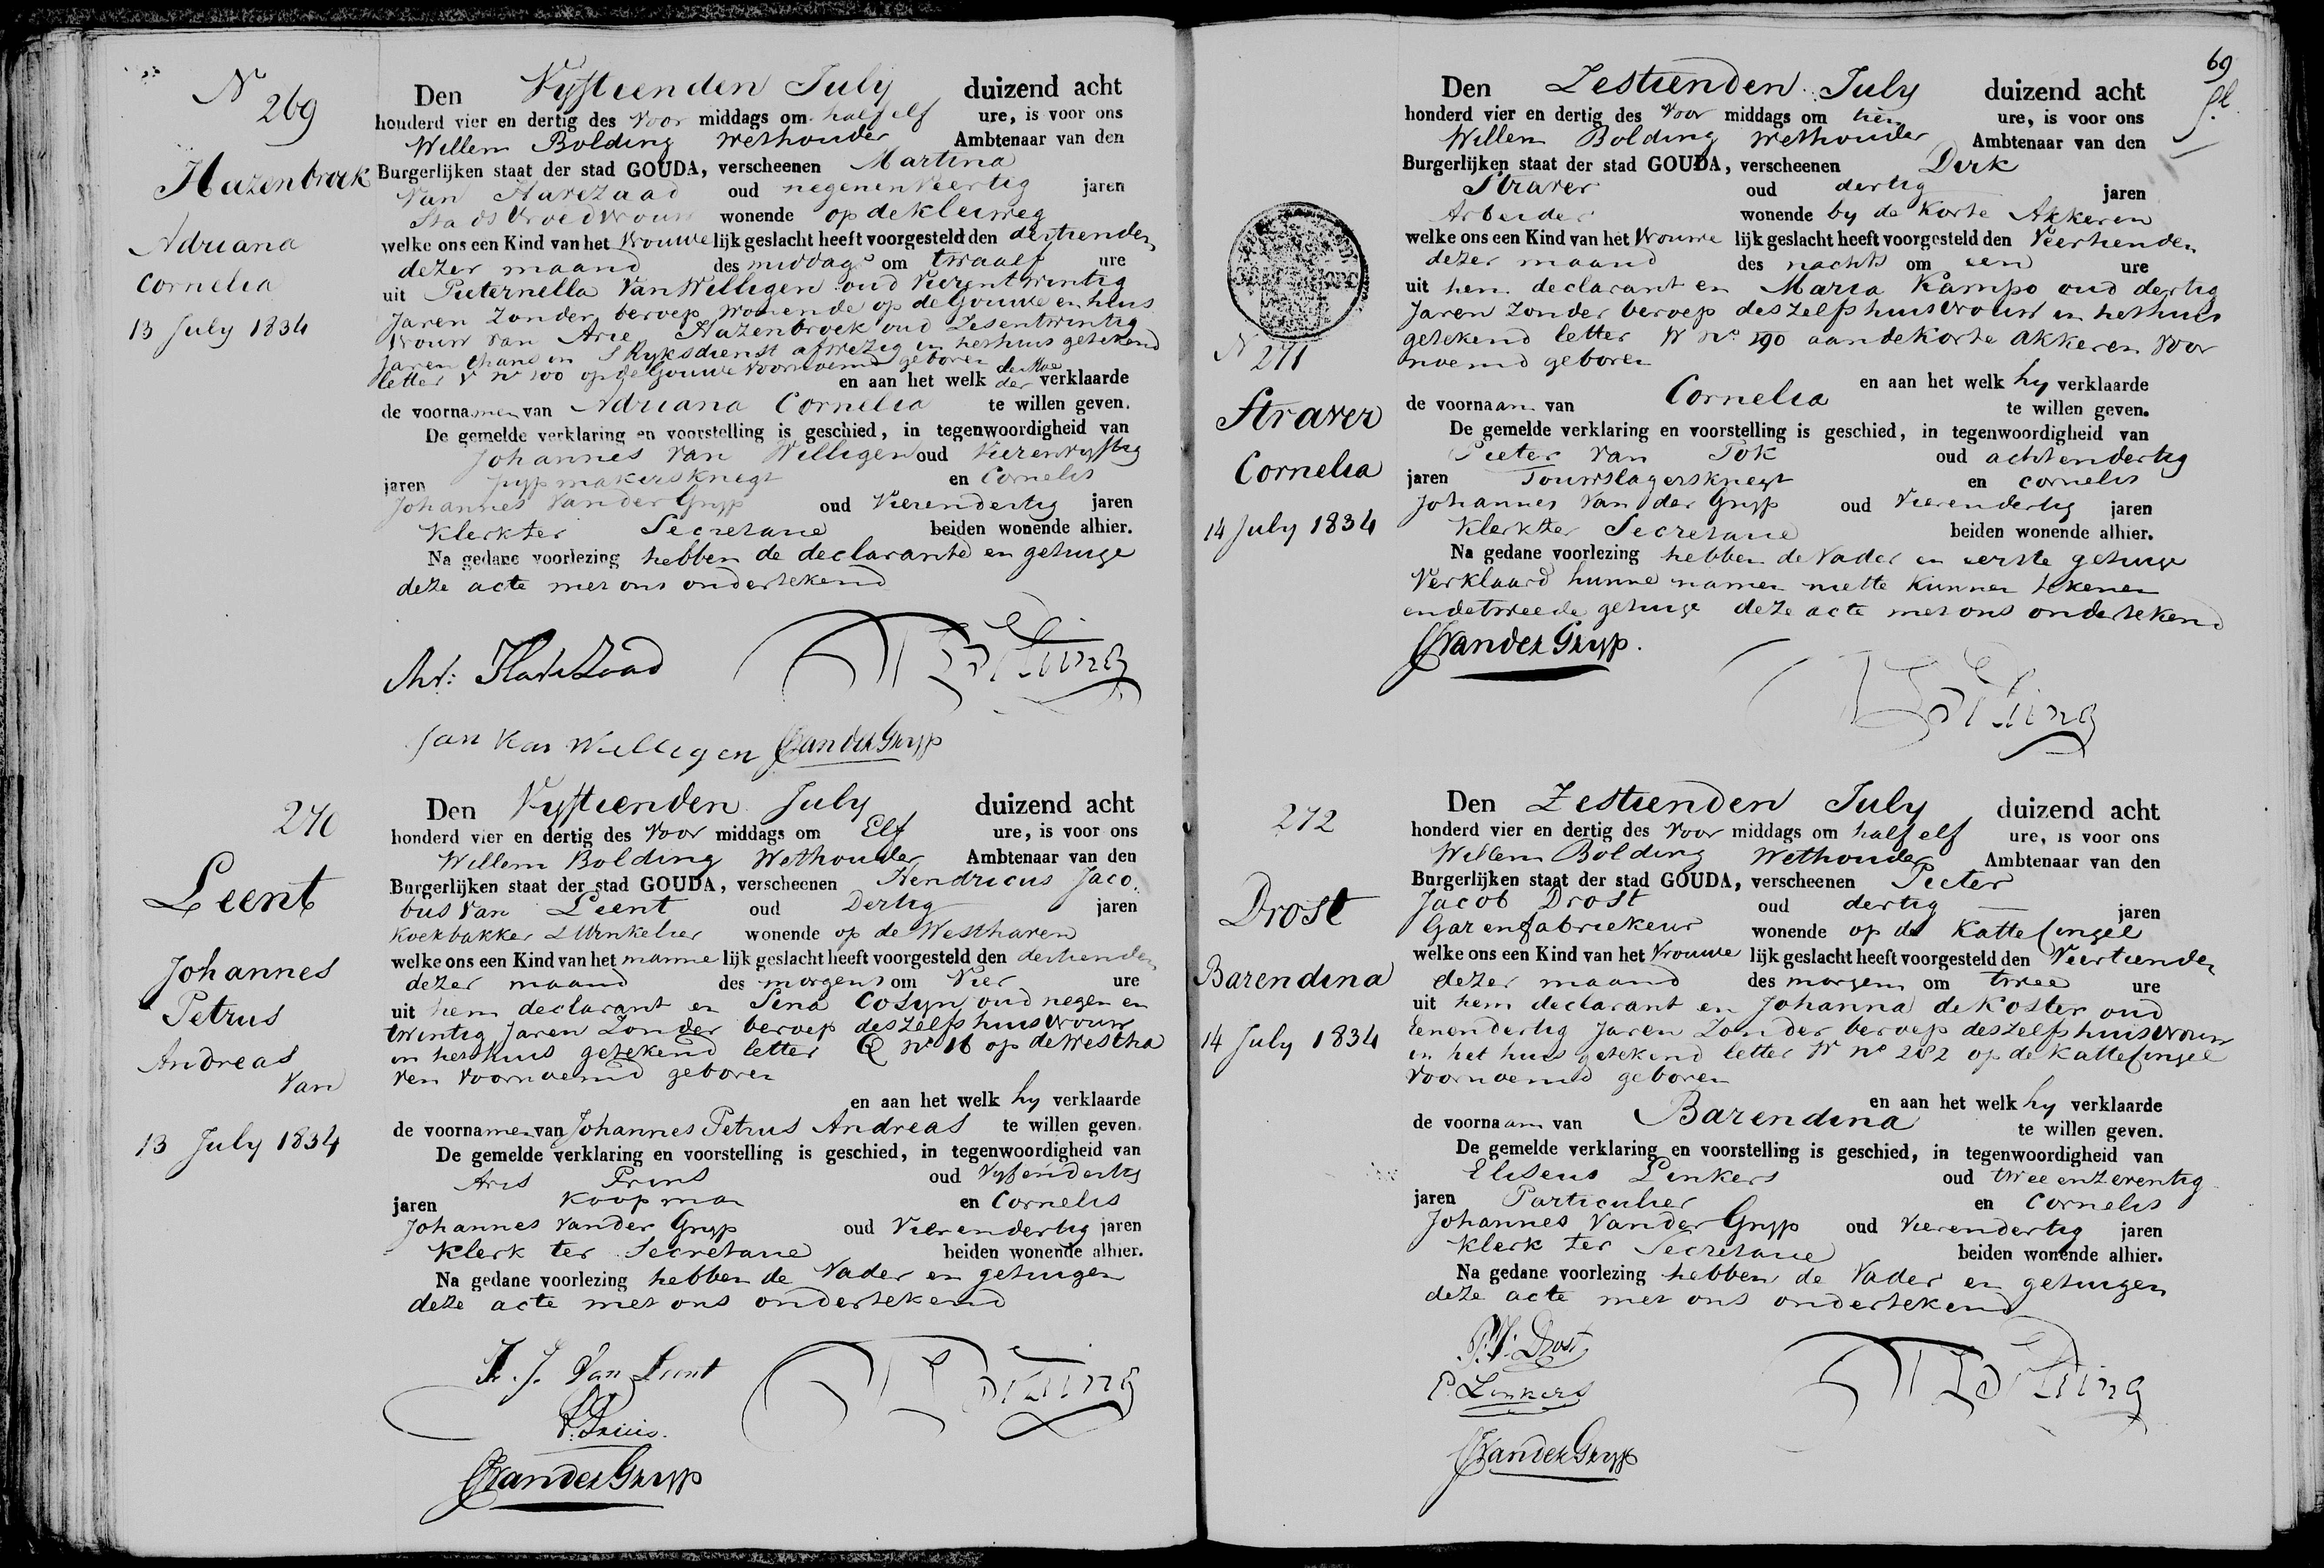 N
269
Hazenbroek
Adriana
Cornelia
13 July 1834
Den Vyftienden July duizend acht
honderd vier en dertig des Voor middags om half elf ure, is voor ons
Willem Bolding Wethouder Ambtenaar van den
Burgerlijken staat der stad GOUDA, verscheenen Martina
Van Harezaad oud negenenveertig jaren
Stads Vroedvrouw wonende op de Kleiweg
welke ons een Kind van het Vrouwe lijk geslacht heeft voorgesteld den dertienden
dezer maand des middags om twaalf ure
uit Pieternella Van Willigen oud Vierentwintig
Jaren Zonder beroep wonende op de Gouwe en huis
Vrouw van Arie Hazenbroek oud Zesentwintig
Jaren thans in S Ryksdienst afwezig in het huis getekend
letter V no 100 op de Gouwe voornoemd geboren
en aan het welk de Moe der verklaarde
de voornamen van Adriana Cornelia te willen geven.
De gemelde verklaring en voorstelling is geschied, in tegenwoordigheid van
Johannes Van Willigen oud Vierenvyftig
jaren pypmakersknegt en Cornelis
Johannes Vander Gryp oud Vierendertig jaren
Klerk ter Secretarie beiden wonende alhier.
Na gedane voorlezing hebben de declarante en getuige
deze acte met ons ondertekend
Mt: Harezaad
W Bolding
Jan van Willigen CJVanderGryp
270
Leent
Johannes
Petrus
Andreas
Van
13 July 1834
Den Vyftienden July duizend acht
honderd vier en dertig des Voor middags om Elf ure, is voor ons
Willem Bolding Wethouder Ambtenaar van den
Burgerlijken staat der stad GOUDA, verscheenen Hendricus Jaco
bus Van Leent oud Dertig jaren
Koekbakker & Winkelier wonende op de Westhaven
welke ons een Kind van het manne lijk geslacht heeft voorgesteld den dertienden
dezer maand des morgens om Vier ure
uit hem declarant en Sina Cosyn oud negen en
twintig Jaren Zonder beroep deszelfs huisvrouw
in het huis getekend letter Q no 16 op de Westha
ven voornoemd geboren
en aan het welk hy verklaarde
de voornamen van Johannes Petrus Andreas te willen geven.
De gemelde verklaring en voorstelling is geschied, in tegenwoordigheid van
Aris Prins oud Vyfendertig
jaren Koopman en Cornelis
Johannes Vander Gryp oud Vierendertig jaren
Klerk ter Secretarie beiden wonende alhier.
Na gedane voorlezing hebben de Vader en getuigen
deze acte met ons ondertekend
H. J. Van Leent
W Bolding
A. Prins.
CJVanderGryp
69
N 271
Straver
Cornelia
14 July 1834
Den Zestienden July duizend acht
honderd vier en dertig des Voor middags om tien ure, is voor ons
Willem Bolding Wethouder Ambtenaar van den
Burgerlijken staat der stad GOUDA, verscheenen Dirk
Straver oud dertig jaren
Arbeider wonende by de Korte Akkeren
welke ons een Kind van het Vrouwe lijk geslacht heeft voorgesteld den Veertienden
dezer maand des nachts om een ure
uit hem declarant en Maria Kampo oud dertig
Jaren Zonder beroep deszelfs huisvrouw in het huis
getekend letter W no 190 aan de Korte Akkeren Voor
noemd geboren
en aan het welk hy verklaarde
de voornaam van Cornelia te willen geven.
De gemelde verklaring en voorstelling is geschied, in tegenwoordigheid van
Pieter Van Tok oud achtendertig
jaren Touwslagersknegt en Cornelis
Johannes Van der Gryp oud Vierendertig jaren
Klerk ter Secretarie beiden wonende alhier.
Na gedane voorlezing hebben de Vader en eerste getuige
Verklaard hunne namen niet te Kunnen tekenen
en de tweede getuige deze acte met ons ondertekend
CJVanderGryp.
W Bolding
272
Drost
Barendina
14 July 1834
Den Zestienden July duizend acht
honderd vier en dertig des Voor middags om half elf ure, is voor ons
Willem Bolding Wethouder Ambtenaar van den
Burgerlijken staat der stad GOUDA, verscheenen Pieter
Jacob Drost oud dertig jaren
Garenfabriekeur wonende op de Kattesingel
welke ons een Kind van het Vrouwe lijk geslacht heeft voorgesteld den Veertienden
dezer maand des morgens om twee ure
uit hem declarant en Johanna de Koster oud
Eenendertig Jaren Zonder beroep deszelfs huisvrouw
in het huis getekend letter W no 282 op de Kattesingel
Voornoemd geboren
en aan het welk hy verklaarde
de voornaam van Barendina te willen geven.
De gemelde verklaring en voorstelling is geschied, in tegenwoordigheid van
Eliseus Linkers oud twee enzeventig
jaren Particulier en Cornelis
Johannes Vander Gryp oud Vierendertig jaren
Klerk ter Secretarie beiden wonende alhier.
Na gedane voorlezing hebben de Vader en getuigen
deze acte met ons ondertekend
P.J. Drost
E. Linkers
W Bolding
CJVanderGryp